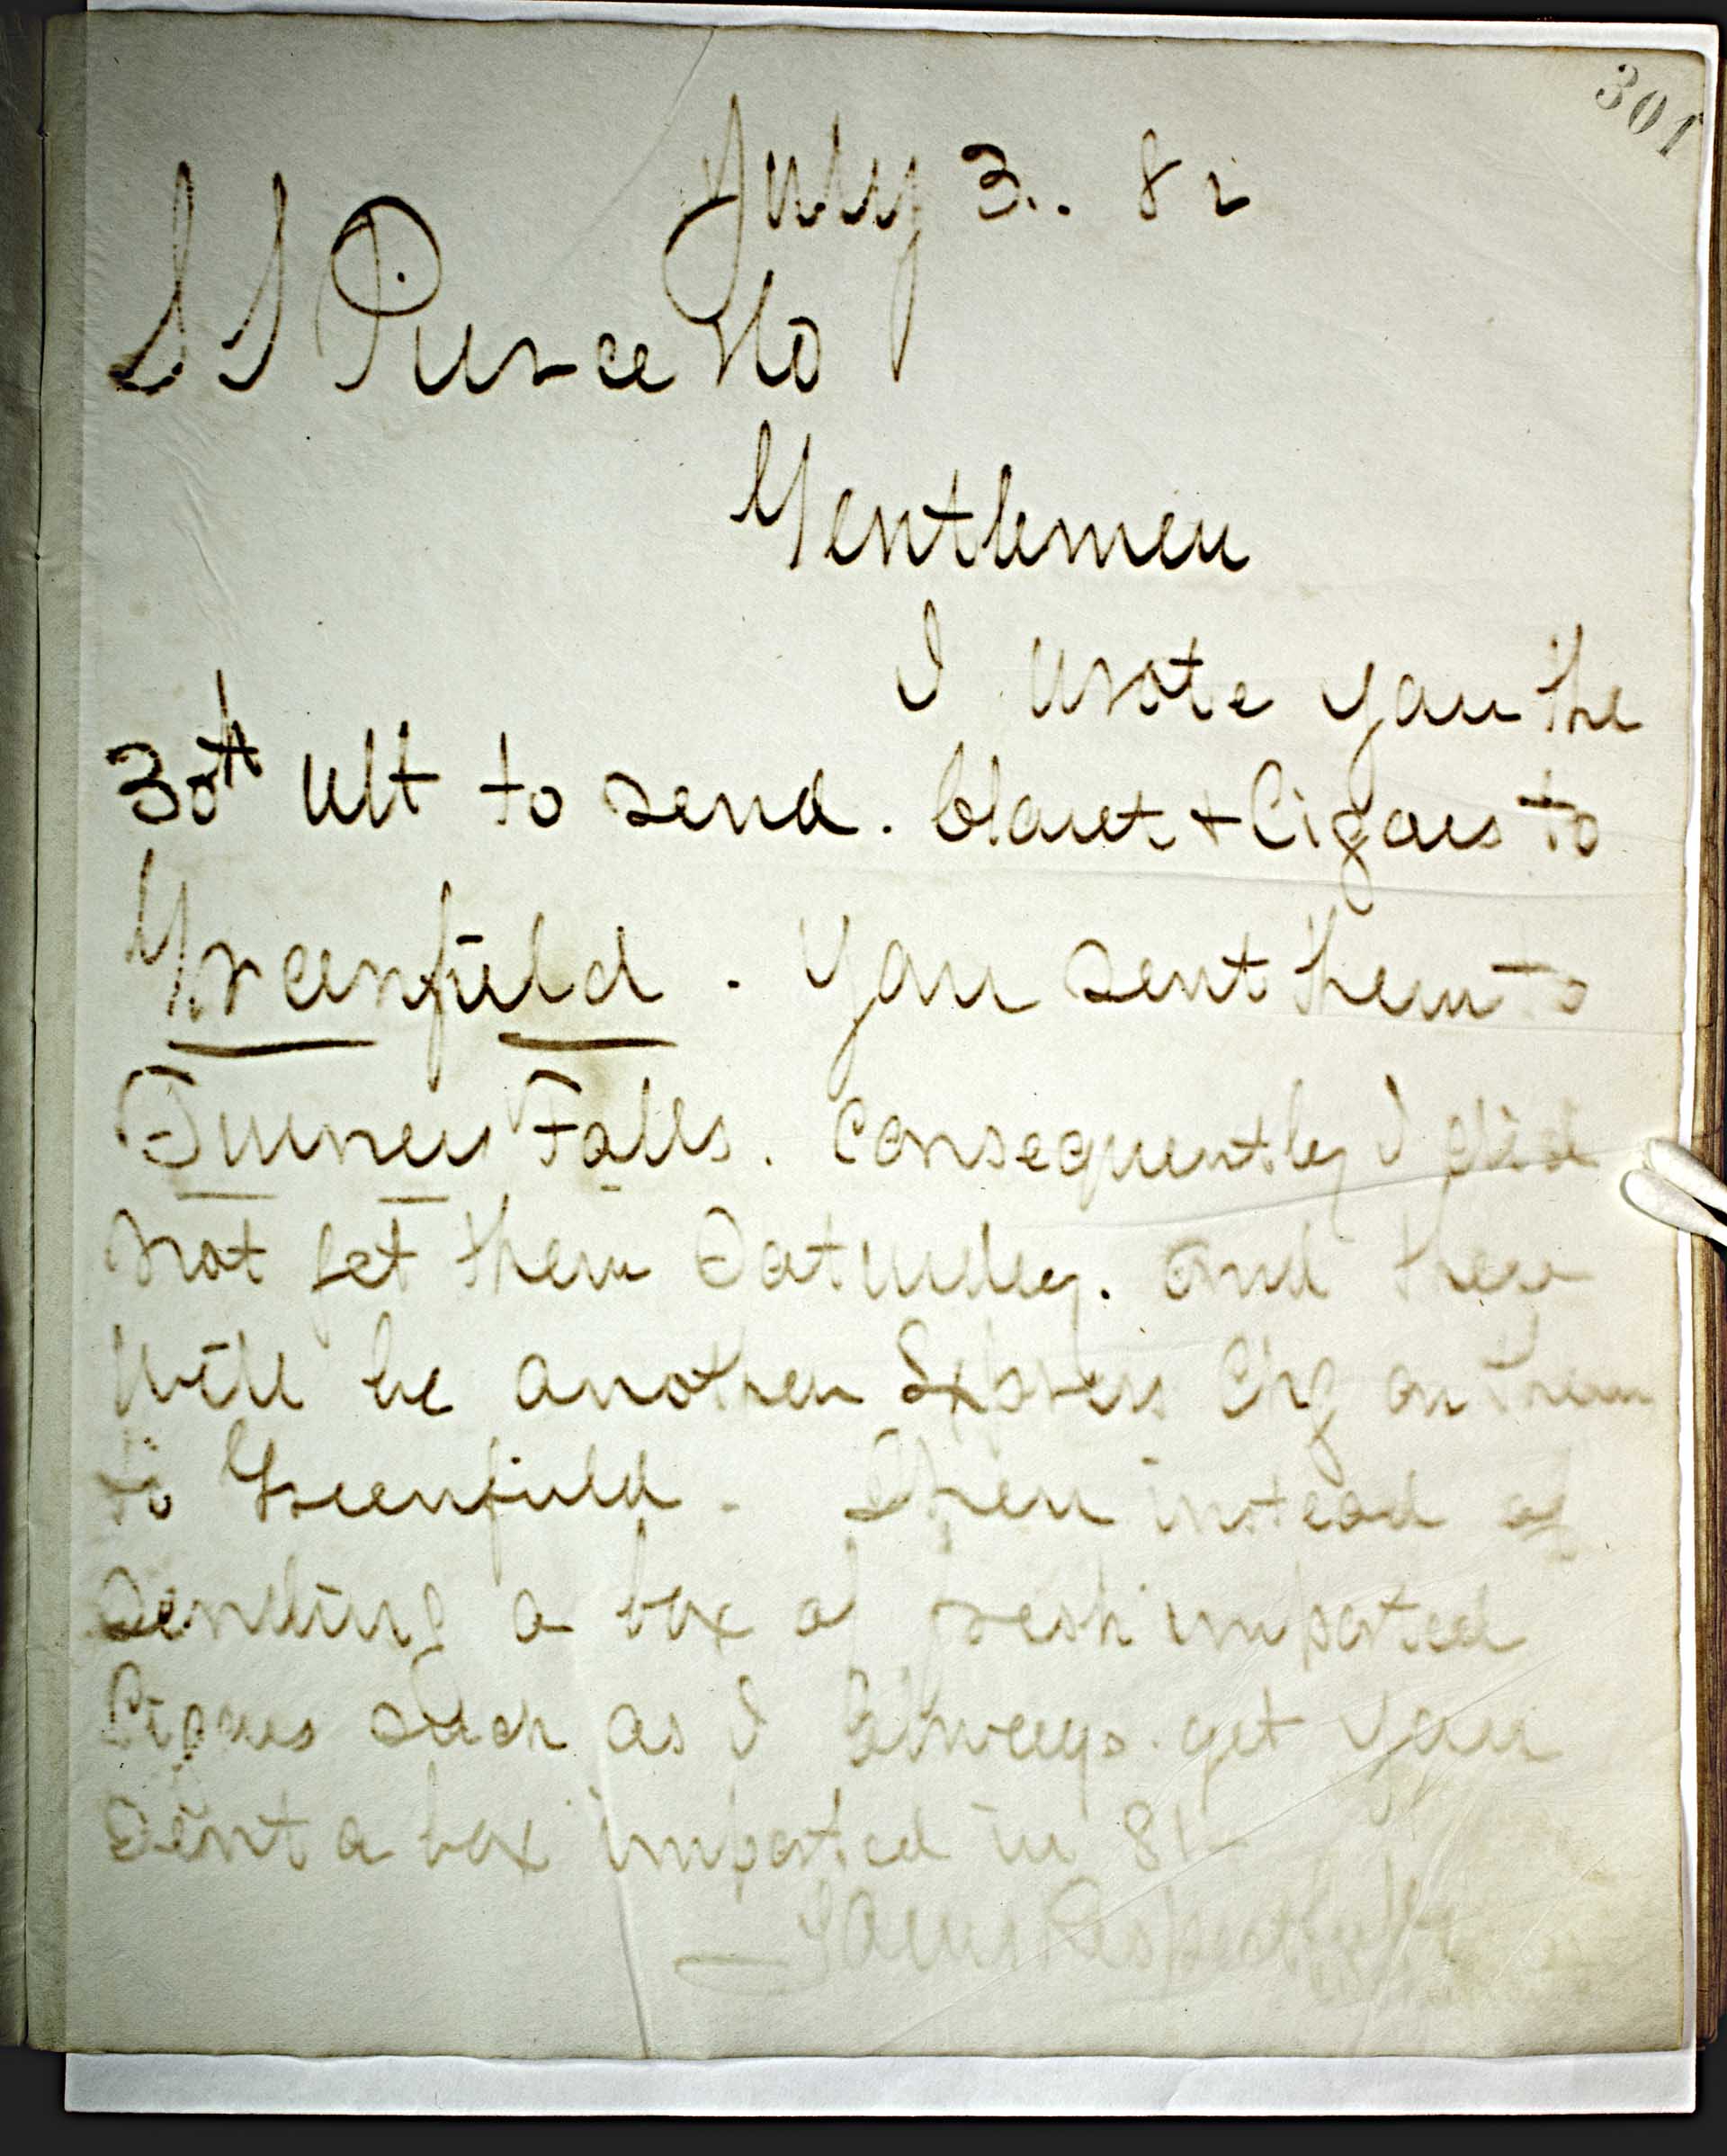 301
July 3.. 82
S S Pierce & Co
Gentlemen
I wrote you the
30th ult to send. Claret & Cigars to
Greenfield. You sent them to
Turners Falls. Consequently I did
not get them Saturday. and there
will be another Express Chg on them
to Greenfield. Then instead of
sending a box of fresh imported
Cigars such as I always get you
sent a box imported in 81
Yours Respectfully